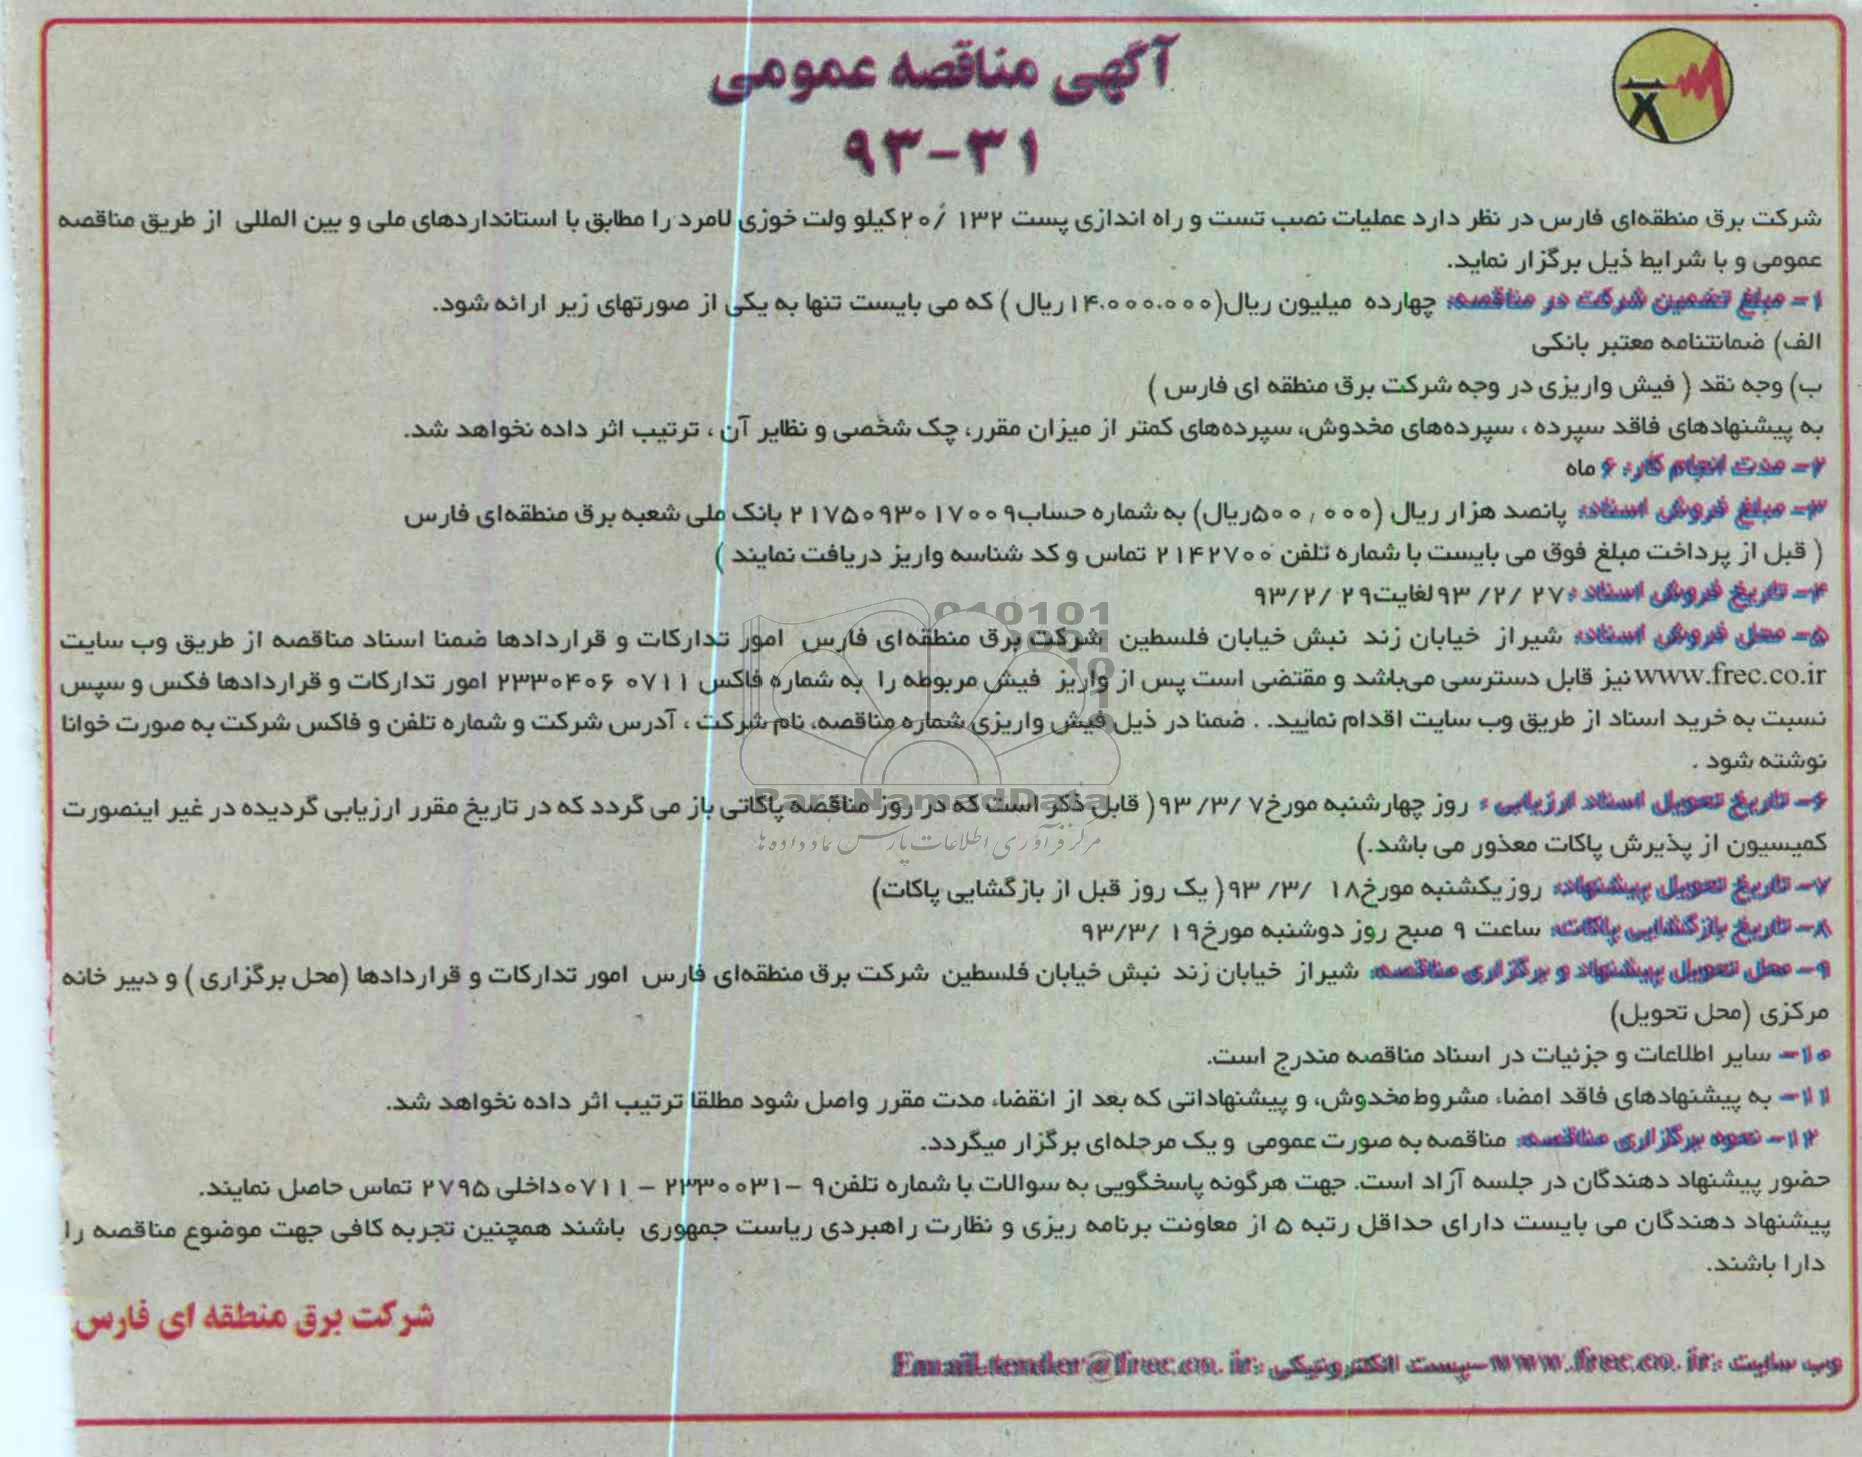 آگهی مناقصه عمومی
۹۳-۳۱
شرکت برق منطقه‌ای فارس در نظر دارد عملیات نصب تست و راه اندازی پست ۱۳۲ /۲۰کیلو ولت خوزی لامرد را مطابق با استانداردهای ملی و بین المللی از طریق مناقصه
عمومی و با شرایط ذیل برگزار نماید.
۱- مبلغ تضمین شرکت در مناقصه: چهارده میلیون ریال(۱۴.۰۰۰.۰۰۰ریال ) که می بایست تنها به یکی از صورتهای زیر ارائه شود.
الف) ضمانتنامه معتبر بانکی
ب) وجه نقد ( فیش واریزی در وجه شرکت برق منطقه ای فارس )
به پیشنهادهای فاقد سپرده ، سپرده‌های مخدوش، سپرده‌های کمتر از میزان مقرر، چک شخصی و نظایر آن ، ترتیب اثر داده نخواهد شد.
۲- مدت انجام کار: ۶ ماه
۳- مبلغ فروش اسناد: پانصد هزار ریال (۵۰۰,۰۰۰ریال) به شماره حساب۲۱۷۵۰۹۳۰۱۷۰۰۹ بانک ملی شعبه برق منطقه‌ای فارس
( قبل از پرداخت مبلغ فوق می بایست با شماره تلفن ۲۱۴۲۷۰۰ تماس و کد شناسه واریز دریافت نمایند )
۴- تاریخ فروش اسناد :۲۷ /۲/ ۹۳لغایت۲۹ /۹۳/۲
۵- محل فروش اسناد: شیراز خیابان زند نبش خیابان فلسطین شرکت برق منطقه‌ای فارس امور تدارکات و قراردادها ضمنا اسناد مناقصه از طریق وب سایت
www.frec.co.ir نیز قابل دسترسی می‌باشد و مقتضی است پس از واریز فیش مربوطه را به شماره فاکس ۰۷۱۱ ۲۳۳۰۴۰۶ امور تدارکات و قراردادها فکس و سپس
نسبت به خرید اسناد از طریق وب سایت اقدام نمایید. . ضمنا در ذیل فیش واریزی شماره مناقصه، نام شرکت ، آدرس شرکت و شماره تلفن و فاکس شرکت به صورت خوانا
نوشته شود .
۶- تاریخ تحویل اسناد ارزیابی : روز چهارشنبه مورخ۷ /۳/ ۹۳( قابل ذکر است که در روز مناقصه پاکاتی باز می گردد که در تاریخ مقرر ارزیابی گردیده در غیر اینصورت
کمیسیون از پذیرش پاکات معذور می باشد.)
۷- تاریخ تحویل پیشنهاد: روز یکشنبه مورخ۱۸ /۳/ ۹۳( یک روز قبل از بازگشایی پاکات)
۸- تاریخ بازگشایی پاکات: ساعت ۹ صبح روز دوشنبه مورخ۱۹ /۹۳/۳
۹- محل تحویل پیشنهاد و برگزاری مناقصه: شیراز خیابان زند نبش خیابان فلسطین شرکت برق منطقه‌ای فارس امور تدارکات و قراردادها (محل برگزاری ) و دبیر خانه
مرکزی (محل تحویل)
۱۰- سایر اطلاعات و جزئیات در اسناد مناقصه مندرج است.
۱۱- به پیشنهادهای فاقد امضاء، مشروط مخدوش، و پیشنهاداتی که بعد از انقضاء مدت مقرر واصل شود مطلقا ترتیب اثر داده نخواهد شد.
۱۲- نحوه برگزاری مناقصه: مناقصه به صورت عمومی و یک مرحله‌ای برگزار میگردد.
حضور پیشنهاد دهندگان در جلسه آزاد است. جهت هرگونه پاسخگویی به سوالات با شماره تلفن۹ -۲۳۳۰۰۳۱ - ۰۷۱۱داخلی ۲۷۹۵ تماس حاصل نمایند.
پیشنهاد دهندگان می بایست دارای حداقل رتبه ۵ از معاونت برنامه ریزی و نظارت راهبردی ریاست جمهوری باشند همچنین تجربه کافی جهت موضوع مناقصه را
دارا باشند.
شرکت برق منطقه ای فارس
وب سایت :www.frec.co.ir-پست الکترونیکی :Email.tender@frec.co.ir
ParsNamadData
مرکز فرآوری اطلاعات پارس نماد داده ها